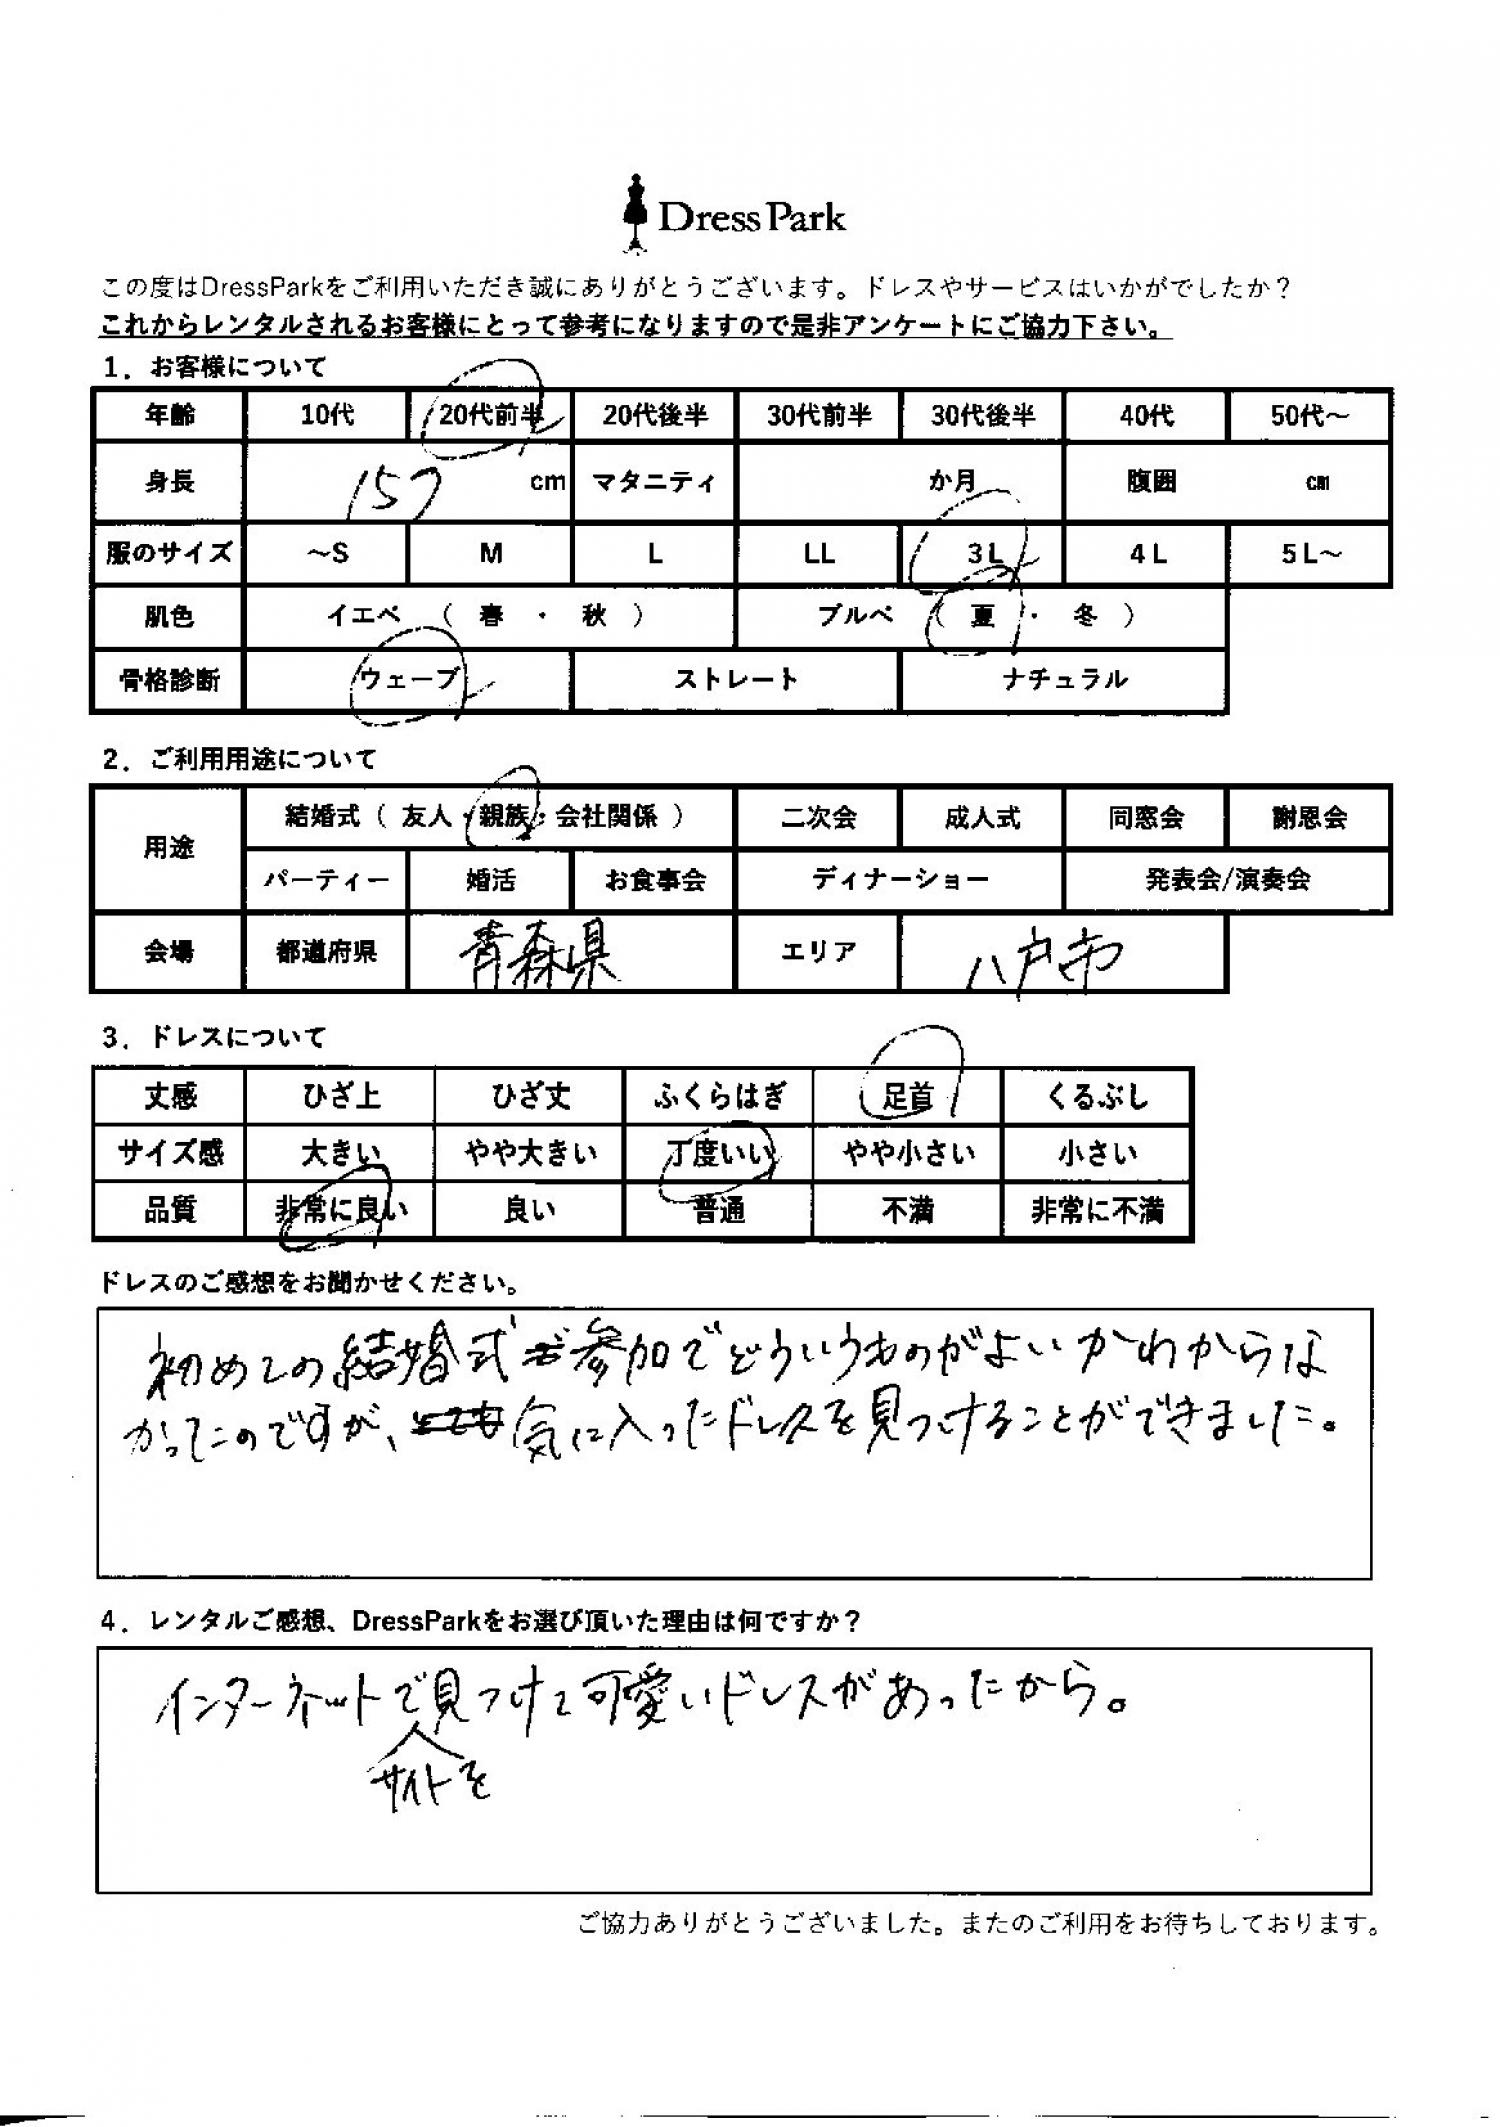 Dress Park
この度はDressParkをご利用いただき誠にありがとうございます。ドレスやサービスはいかがでしたか？
これからレンタルされるお客様にとって参考になりますので是非アンケートにご協力下さい。
1．お客様について
年齢 10代 20代前半 20代後半 30代前半 30代後半 40代 50代～
身長 157 cm マタニティ か月 腹囲 cm
服のサイズ ～S M L LL 3L 4L 5L～
肌色 イエベ （ 春 ・ 秋 ） ブルベ （ 夏 ・ 冬 ）
骨格診断 ウェーブ ストレート ナチュラル
2．ご利用用途について
用途 結婚式（ 友人・親族・会社関係 ） 二次会 成人式 同窓会 謝恩会
パーティー 婚活 お食事会 ディナーショー 発表会/演奏会
会場 都道府県 青森県 エリア 八戸市
3．ドレスについて
丈感 ひざ上 ひざ丈 ふくらはぎ 足首 くるぶし
サイズ感 大きい やや大きい 丁度いい やや小さい 小さい
品質 非常に良い 良い 普通 不満 非常に不満
ドレスのご感想をお聞かせください。
初めての結婚式参加でどういうものがよいかわからな
かったのですが、気に入ったドレスを見つけることができました。
4．レンタルご感想、DressParkをお選び頂いた理由は何ですか？
インターネットで見つけて可愛いドレスがあったから。
サイトを
ご協力ありがとうございました。またのご利用をお待ちしております。